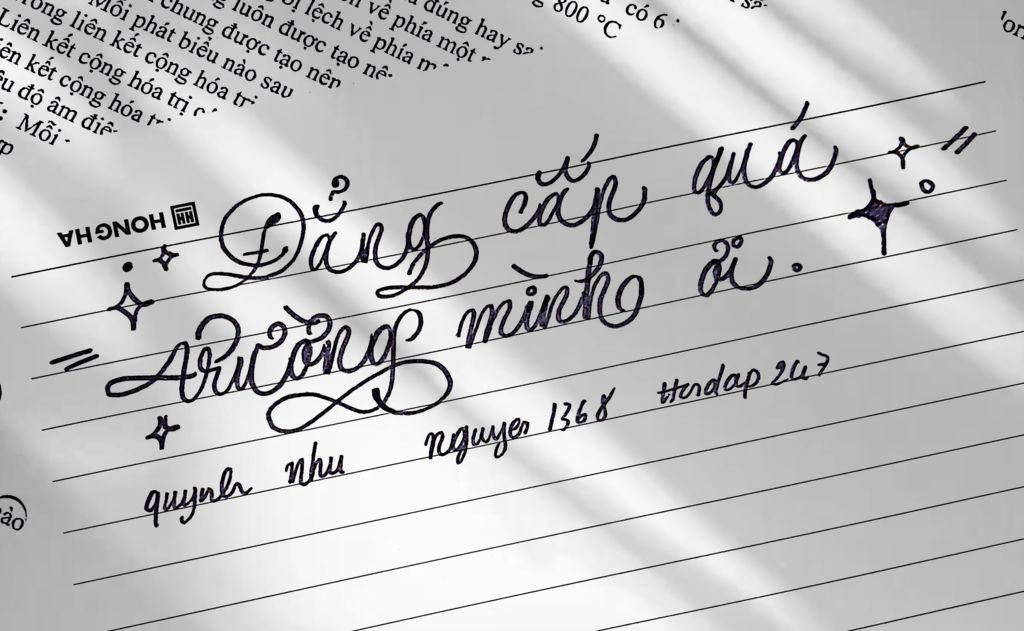 đúng hay
có 6
800 °C
lệch về phía một
luôn được tạo
chung được tạo nên
Mỗi phát biểu nào sau
liên kết cộng hóa
Liên kết cộng hóa trị
kết cộng hóa
độ âm
Mỗi
HONG HA
Đẳng cấp quá
trường mình ơi.
quynh nhu nguyen 1368 Hoidap 247